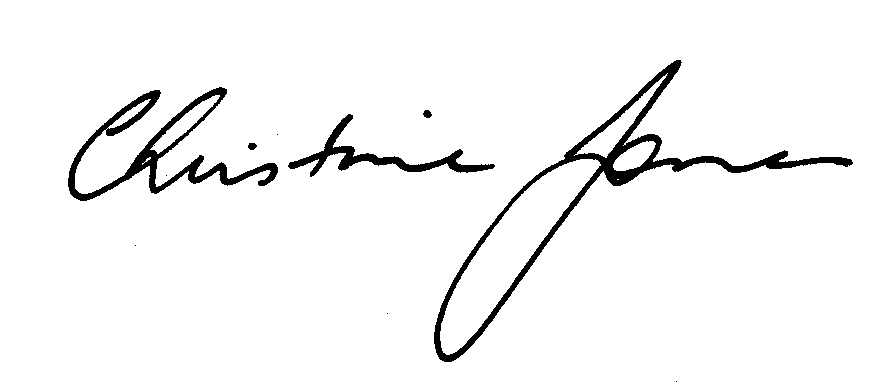 Christine Jones